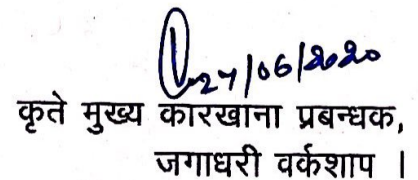 27/06/2020
कृते मुख्य कारखाना प्रबन्धक,
जगाधरी वर्कशाप ।